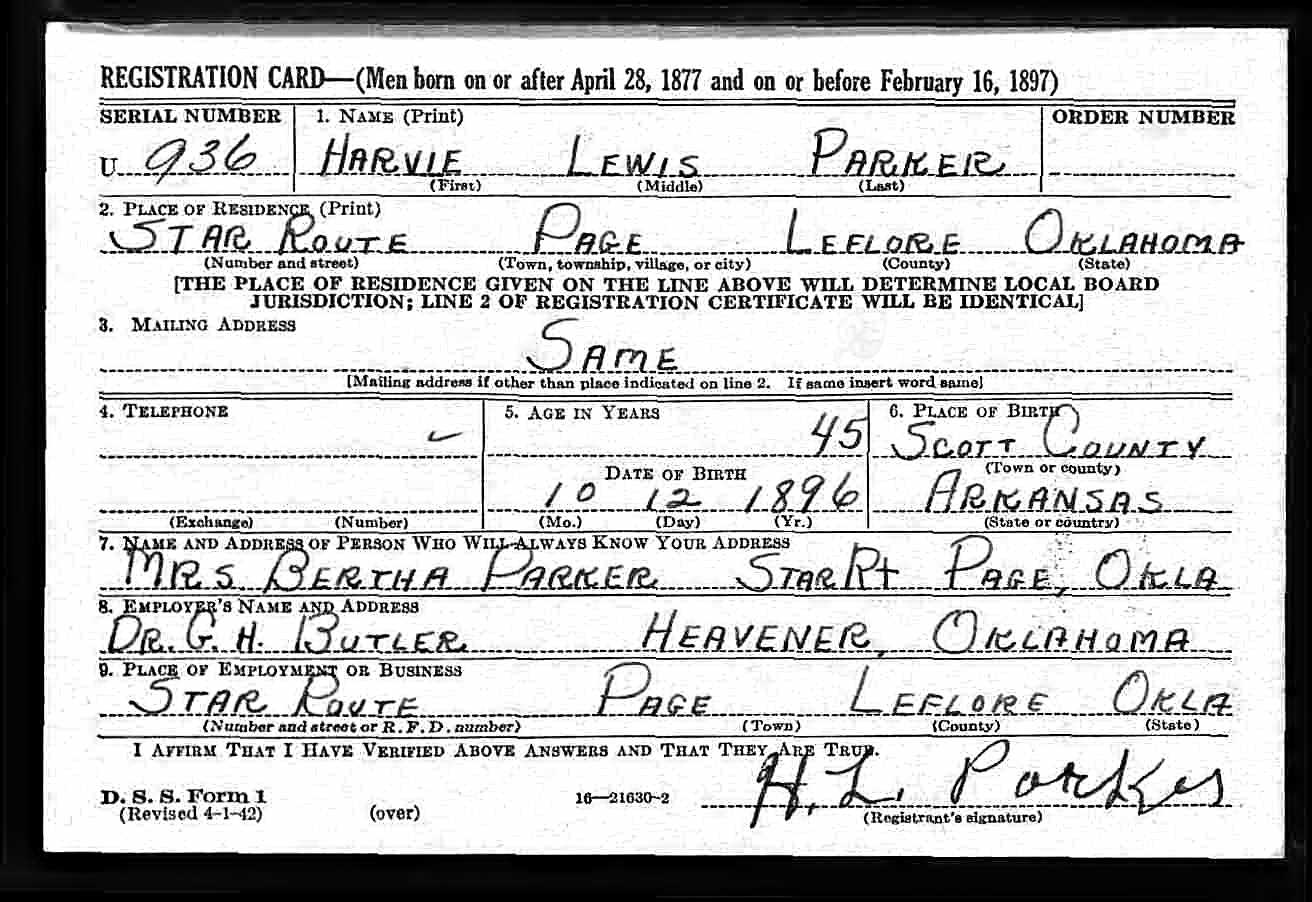 REGISTRATION CARD—(Men born on or after April 28, 1877 and on or before February 16, 1897)
SERIAL NUMBER 1. NAME (Print) ORDER NUMBER
U 936 HARVIE LEWIS PARKER
(First) (Middle) (Last)
2. PLACE OF RESIDENCE (Print)
STAR ROUTE PAGE LEFLORE OKLAHOMA
(Number and street) (Town, township, village, or city) (County) (State)
[THE PLACE OF RESIDENCE GIVEN ON THE LINE ABOVE WILL DETERMINE LOCAL BOARD
JURISDICTION; LINE 2 OF REGISTRATION CERTIFICATE WILL BE IDENTICAL]
3. MAILING ADDRESS
SAME
[Mailing address if other than place indicated on line 2. If same insert word same]
4. TELEPHONE 5. AGE IN YEARS 6. PLACE OF BIRTH
45 SCOTT COUNTY
DATE OF BIRTH (Town or county)
10 12 1896 ARKANSAS
(Exchange) (Number) (Mo.) (Day) (Yr.) (State or country)
7. NAME AND ADDRESS OF PERSON WHO WILL ALWAYS KNOW YOUR ADDRESS
MRS BERTHA PARKER STAR Rt PAGE, OKLA
8. EMPLOYER'S NAME AND ADDRESS
DR. G. H. BUTLER HEAVENER, OKLAHOMA
9. PLACE OF EMPLOYMENT OR BUSINESS
STAR ROUTE PAGE LEFLORE OKLA
(Number and street or R. F. D. number) (Town) (County) (State)
I AFFIRM THAT I HAVE VERIFIED ABOVE ANSWERS AND THAT THEY ARE TRUE.
H. L. Parker
D. S. S. Form 1 16—21630-2
(Revised 4-1-42) (over) (Registrant's signature)